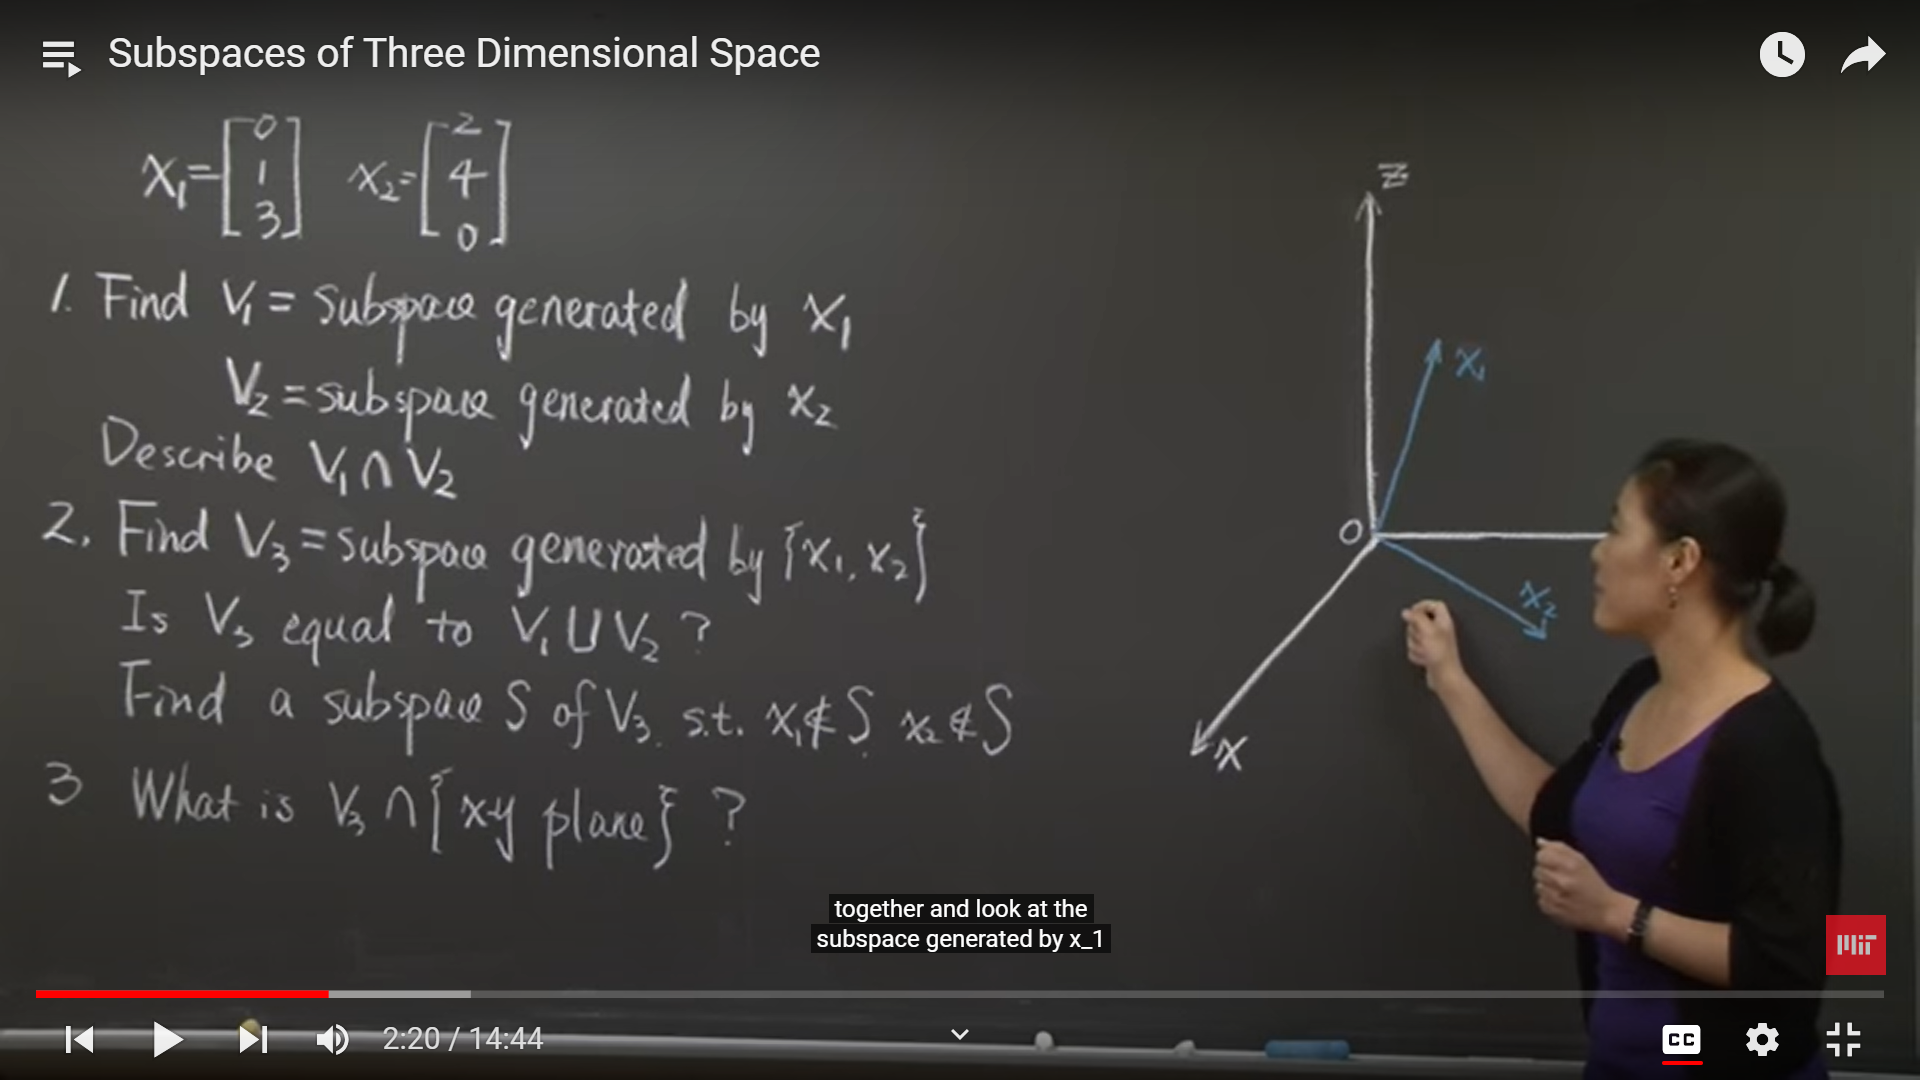 Subspaces of Three Dimensional Space
X₁ = [0 1 3] X₂ = [2 4 0]
1. Find V₁ = Subspace generated by X₁
V₂ = subspace generated by X₂
Describe V₁ ∩ V₂
2. Find V₃ = subspace generated by {X₁, X₂}
Is V₃ equal to V₁ ∪ V₂ ?
Find a subspace S of V₃ s.t. X₁ ∉ S X₂ ∉ S
3 What is V₃ ∩ {xy plane} ?
Z
X₁
O
X₂
X
together and look at the
subspace generated by x_1
MIT
2:20 / 14:44
CC